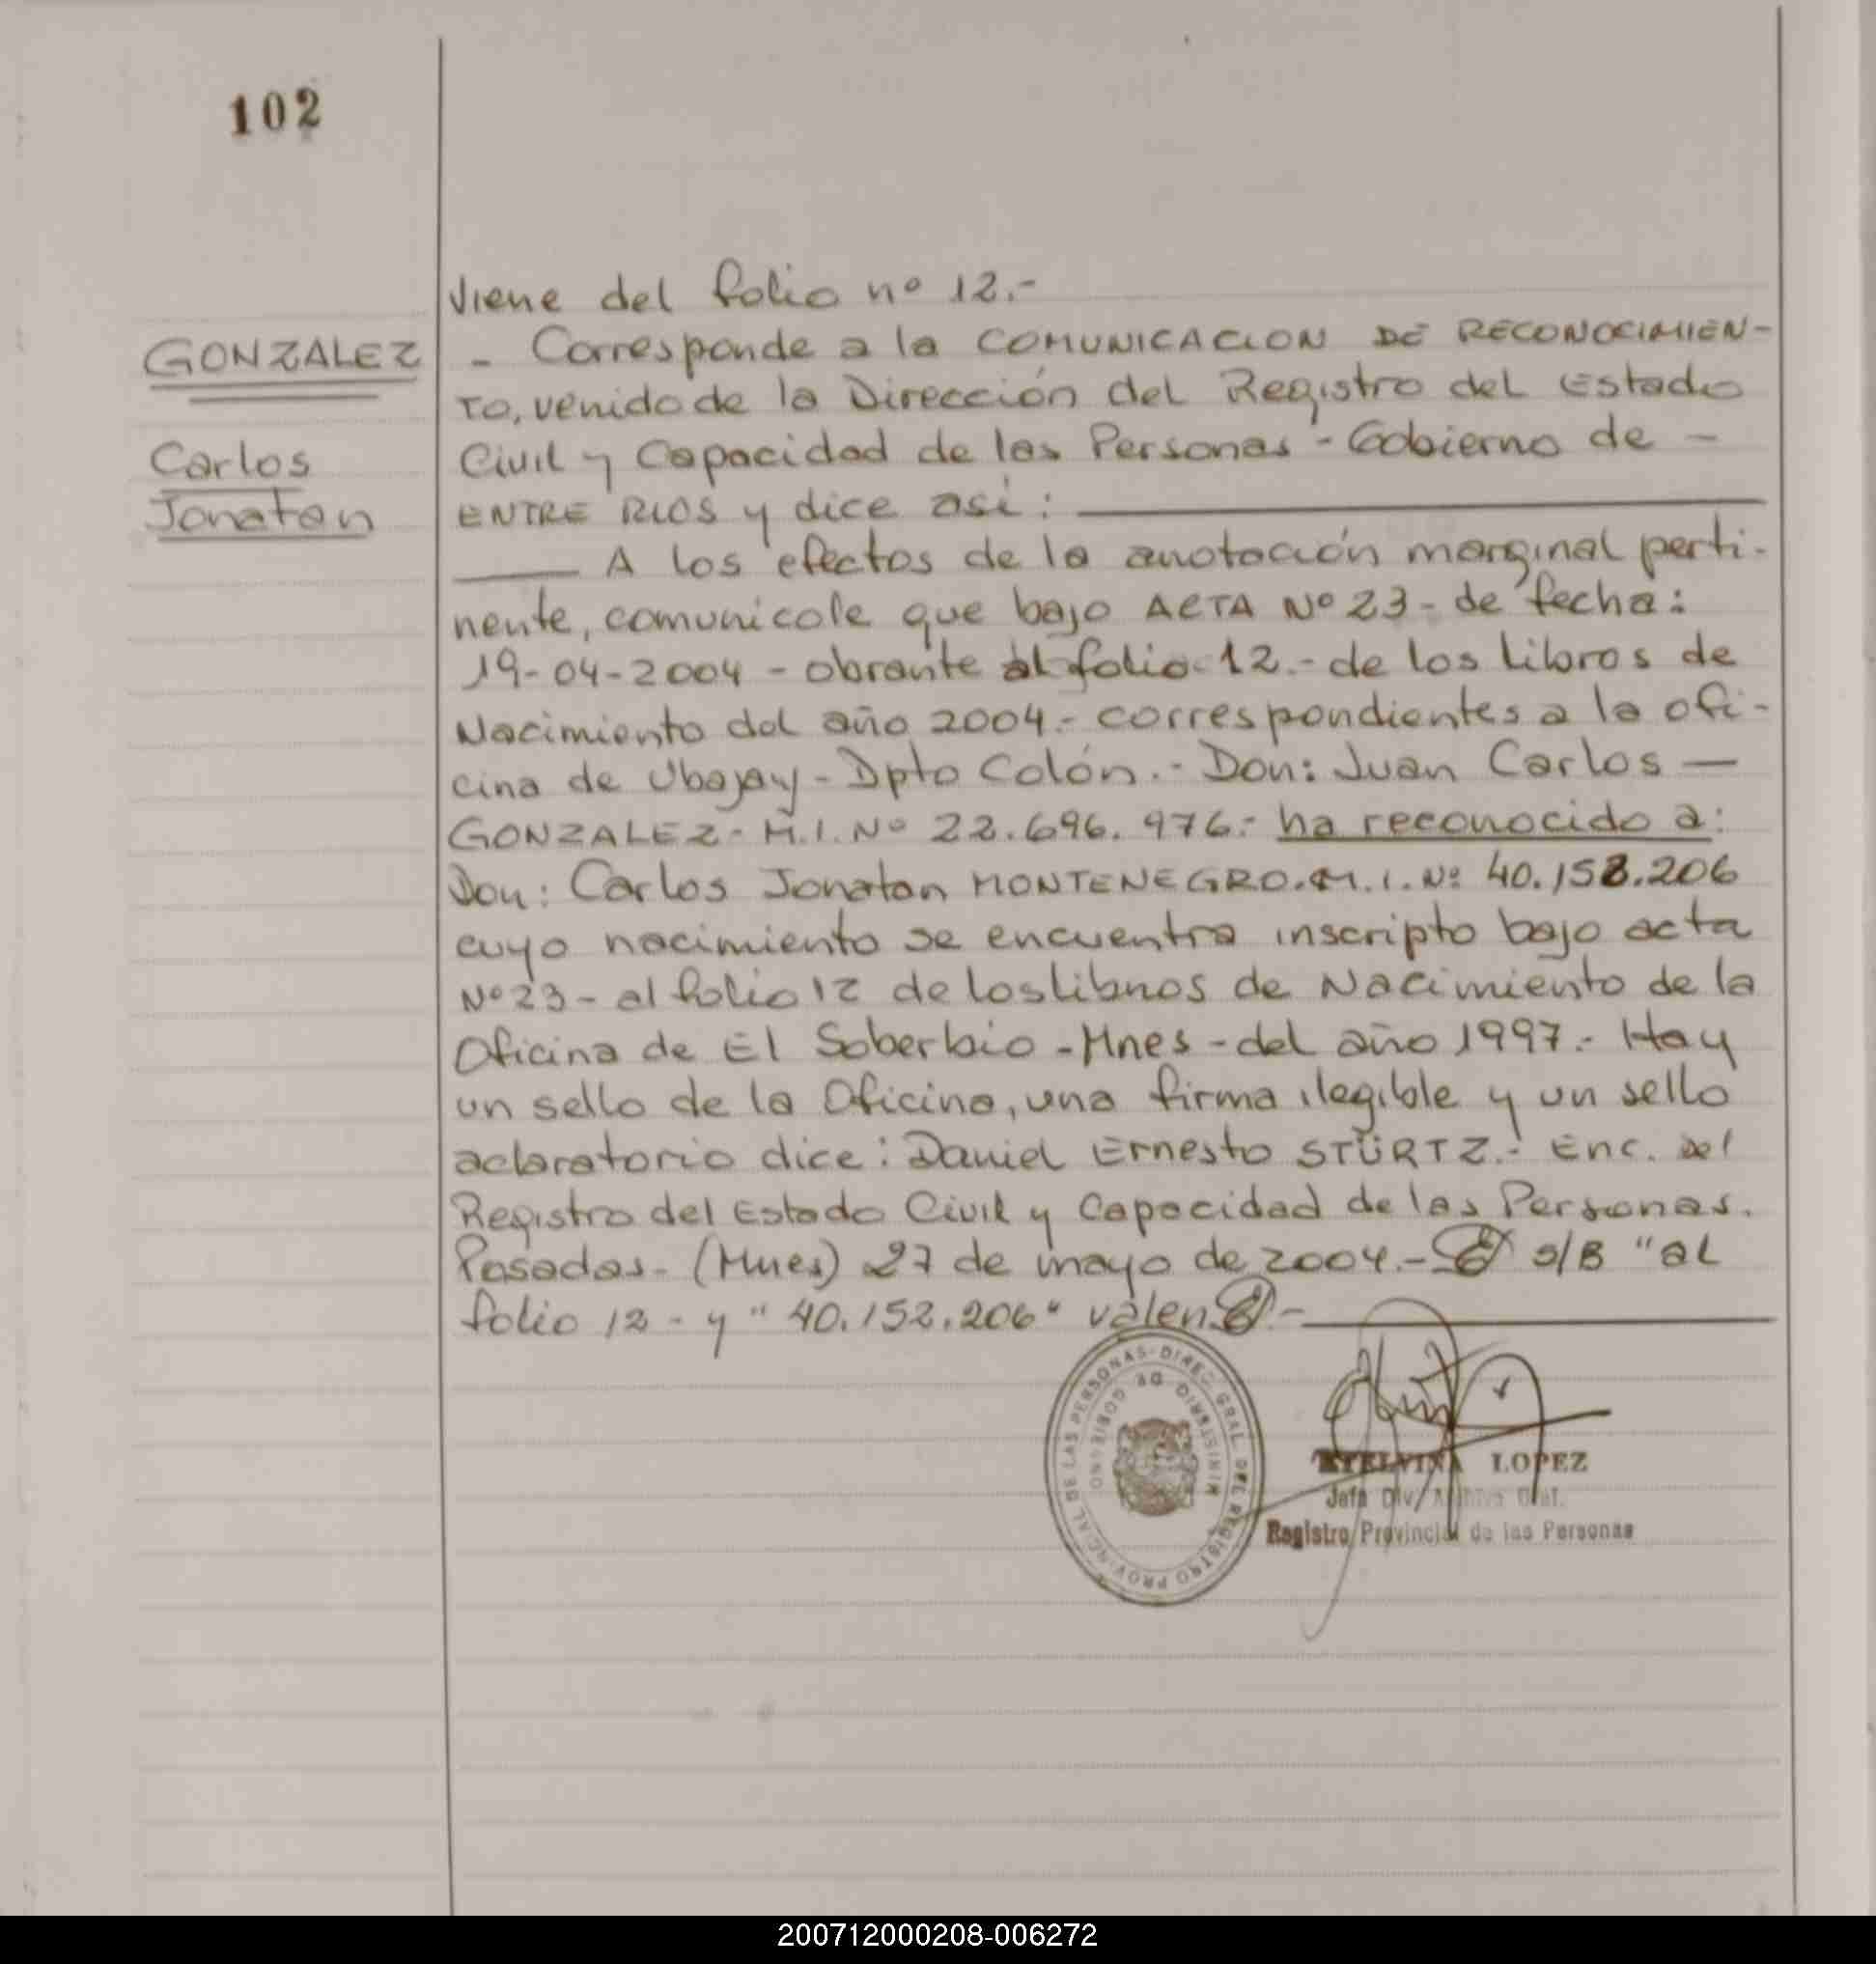 102
viene del folio nº 12.-
GONZALEZ
- Corresponde a la COMUNICACION DE RECONOCIMIEN-
TO, venido de la Dirección del Registro del Estado
Carlos
Civil y Capacidad de las Personas - Gobierno de -
Jonatan
ENTRE RIOS y dice asi:
A los efectos de la anotación marginal perti-
nente, comunicole que bajo ACTA Nº 23 - de fecha:
19-04-2004 - obrante al folio 12.- de los Libros de
Nacimiento del año 2004.- correspondientes a la ofi-
cina de Ubajay - Dpto Colón.- Don: Juan Carlos -
GONZALEZ - M.I. Nº 22.696.976.- ha reconocido a:
Don: Carlos Jonatan MONTENEGRO. M.I. Nº 40.152.206
cuyo nacimiento se encuentra inscripto bajo acta
Nº 23 - al folio 12 de los libros de Nacimiento de la
Oficina de El Soberbio - Mnes - del año 1997.- Hay
un sello de la Oficina, una firma ilegible y un sello
aclaratorio dice: Daniel Ernesto STÜRTZ.- Enc. del
Registro del Estado Civil y Capacidad de las Personas.
Posadas - (Mnes) 27 de mayo de 2004.- S/B "al
folio 12 - y " 40.152.206" valen.-
REGISTRO PROVINCIAL DE LAS PERSONAS - DIREC. GRAL. DEL
MINISTERIO DE GOBIERNO
ETELVINA LOPEZ
Jefa Div/ Archivo Gral.
Registro Provincial de las Personas
200712000208-006272